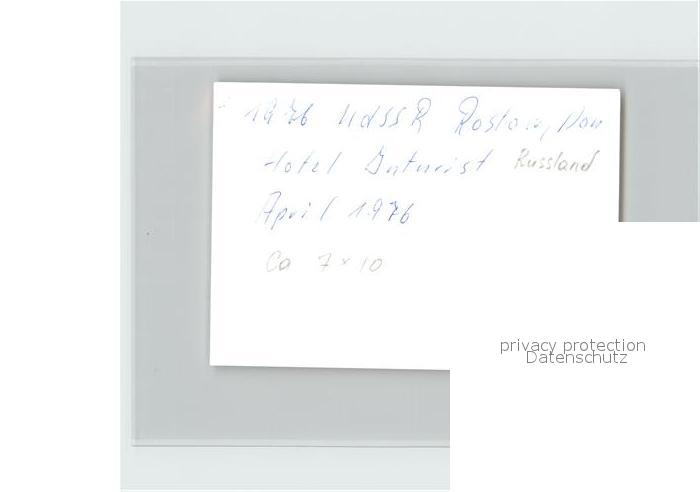 1976 UdSSR Rostow, Don
Hotel Inturist Russland
April 1976
Ca 7 x 10
privacy protection
Datenschutz